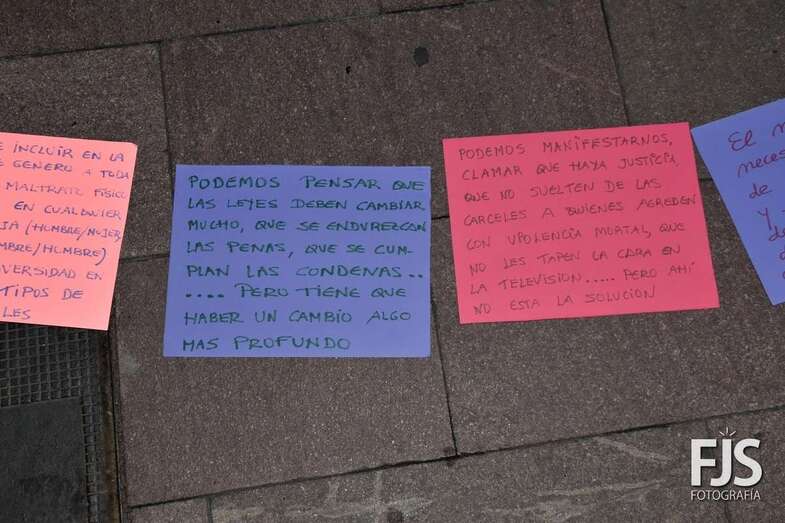 E INCLUIR EN LA
E GENERO A TODA
MALTRATO FÍSICO
EN CUALQUIER
JA (HOMBRE/MUJER,
MBRE/HOMBRE)
VERSIDAD EN
TIPOS DE
LES
PODEMOS PENSAR QUE
LAS LEYES DEBEN CAMBIAR
MUCHO, QUE SE ENDUREZCAN
LAS PENAS, QUE SE CUM-
PLAN LAS CONDENAS..
..... PERO TIENE QUE
HABER UN CAMBIO ALGO
MAS PROFUNDO
PODEMOS MANIFESTARNOS,
CLAMAR QUE HAYA JUSTICIA,
QUE NO SUELTEN DE LAS
CARCELES A QUIENES AGREDEN
CON VIOLENCIA MORTAL, QUE
NO LES TAPEN LA CARA EN
LA TELEVISION..... PERO AHÍ
NO ESTA LA SOLUCION
El
neces
de
y
FJS
FOTOGRAFÍA